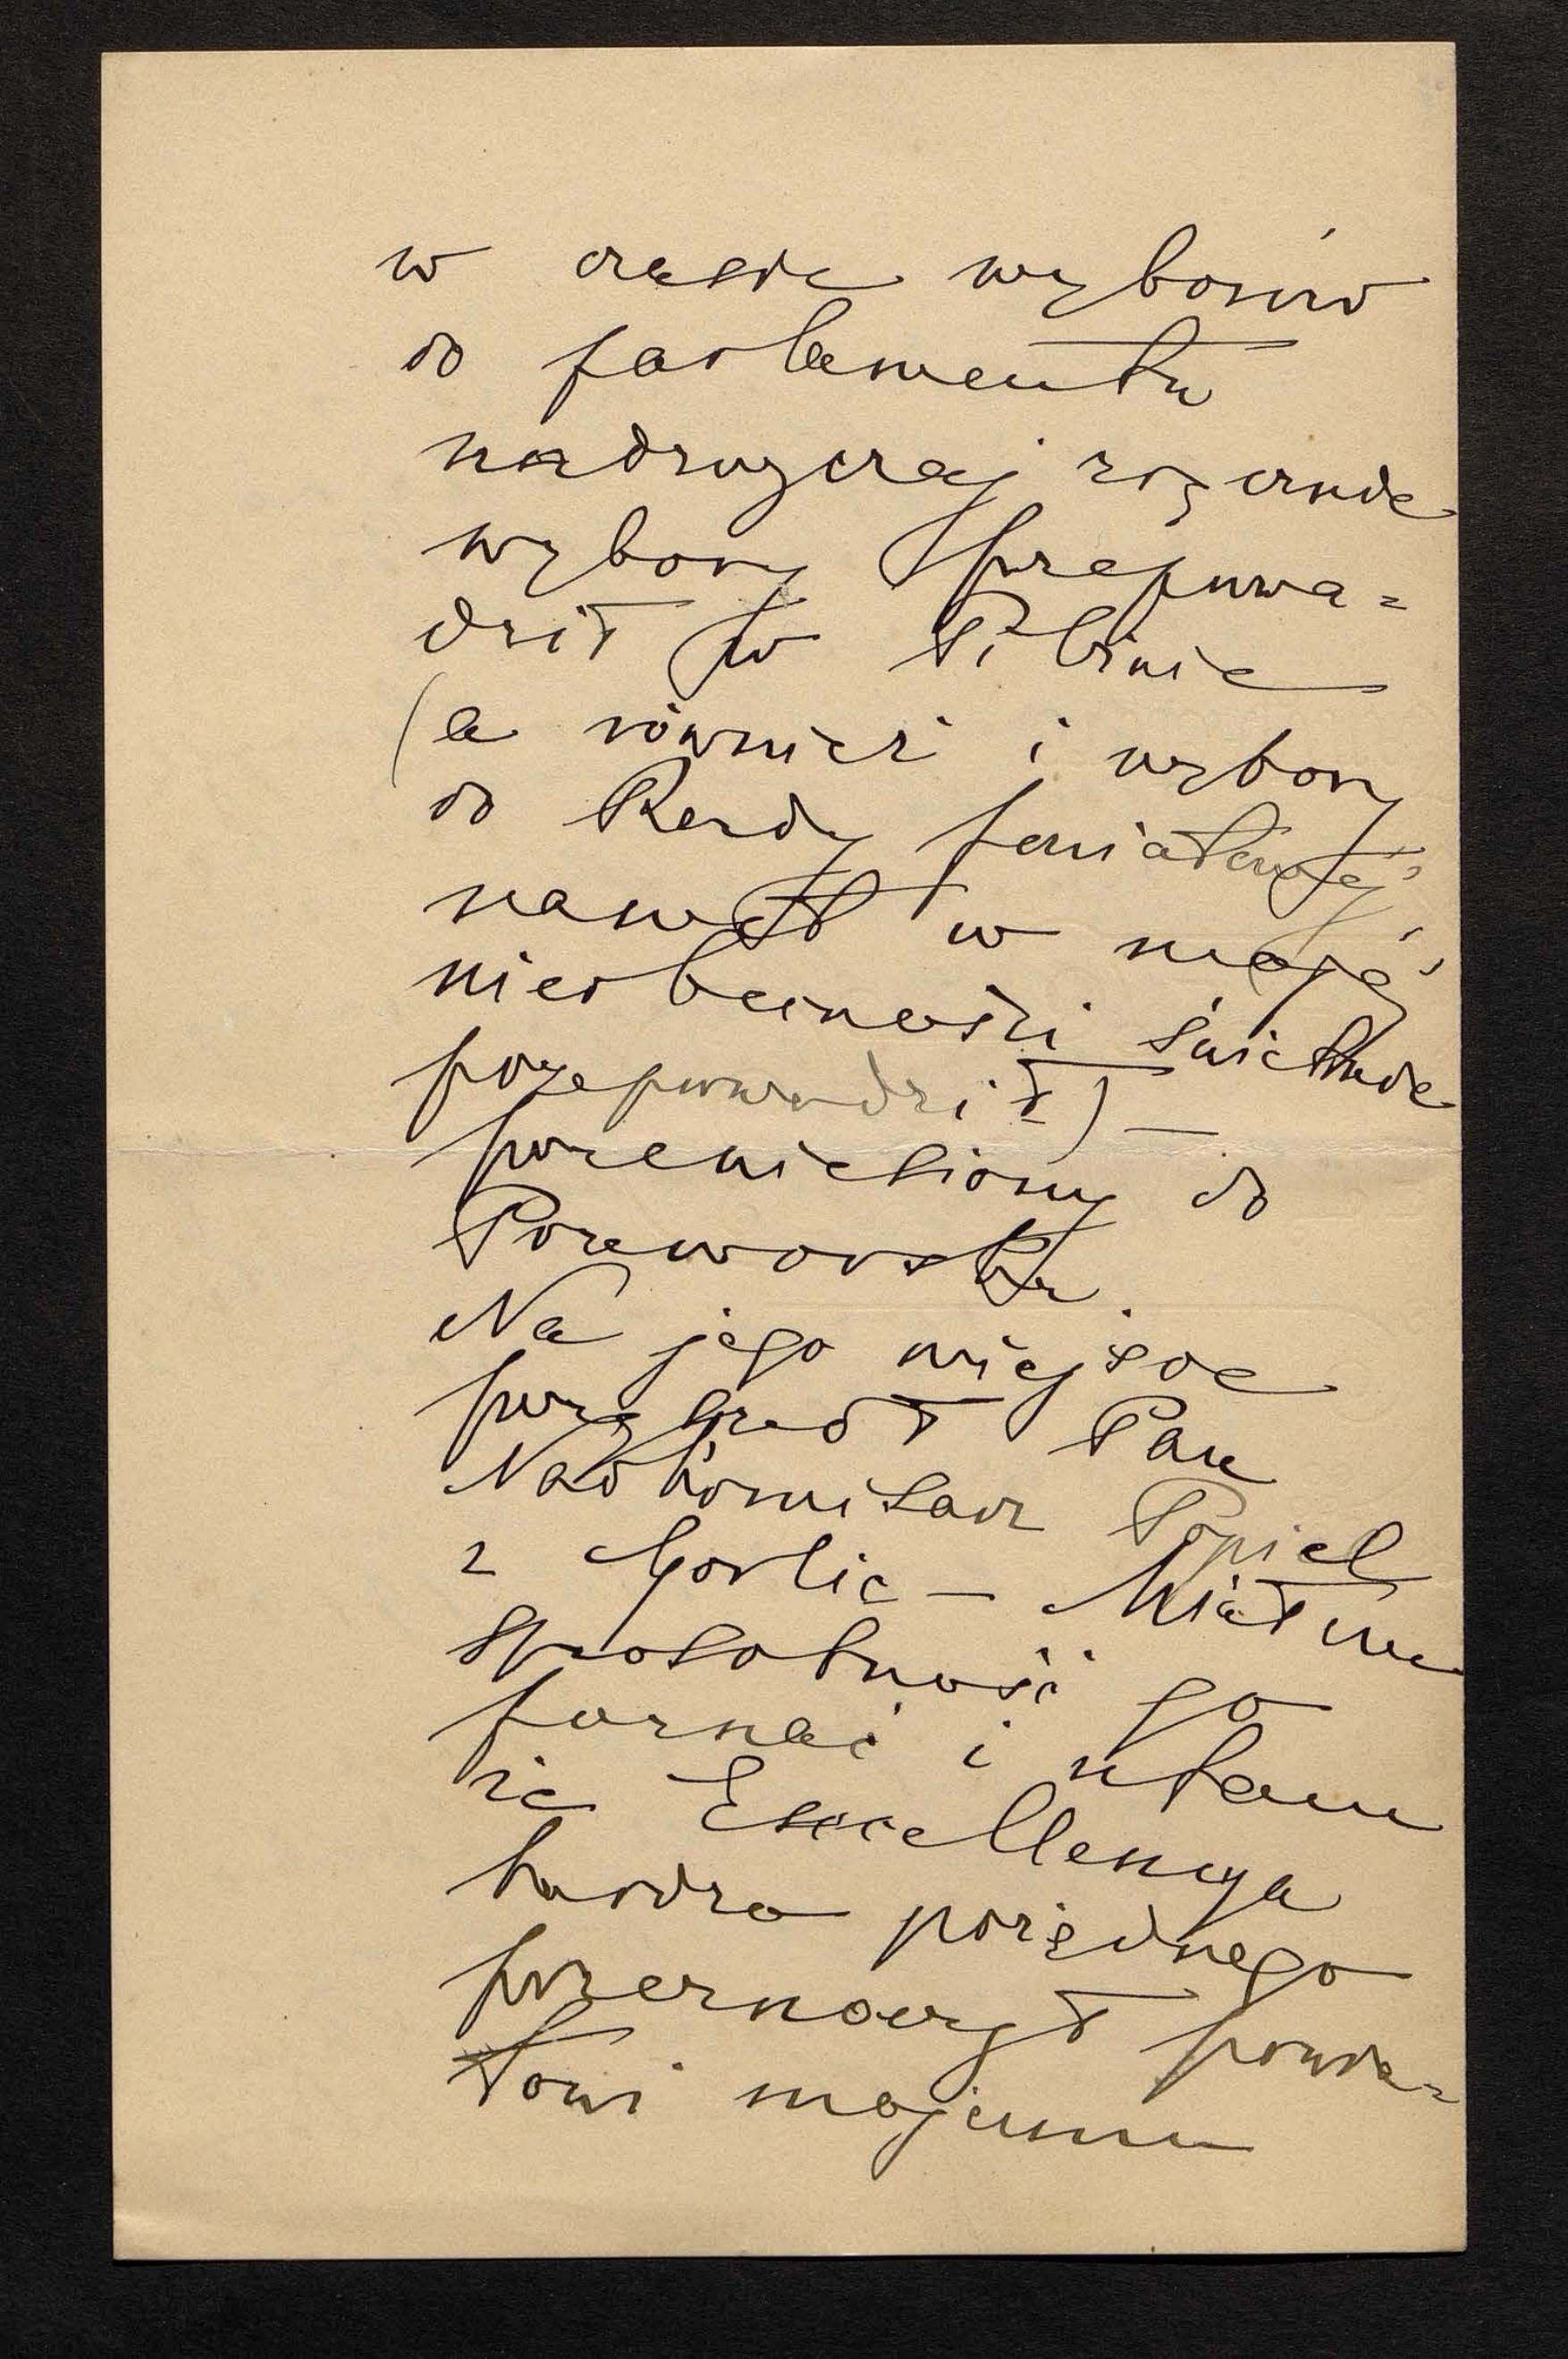 w czasie wyborów
do parlamentu
nadzwyczaj zręcznie
wybory przeprowa=
dził w Pilźnie
(a również i wybory
do Rady powiatowéj
nawet w mojéj
nieobecności świetnie
przeprowadził) —
przeniesiony do
Przeworska.
Na jego miejsce
przyszedł Pan
Nadkomisarz Popiel
z Gorlic — Miałem
sposobność go
poznać i ufam
że Excellencya
bardzo porządnego
przeznaczył powia=
towi mojemu